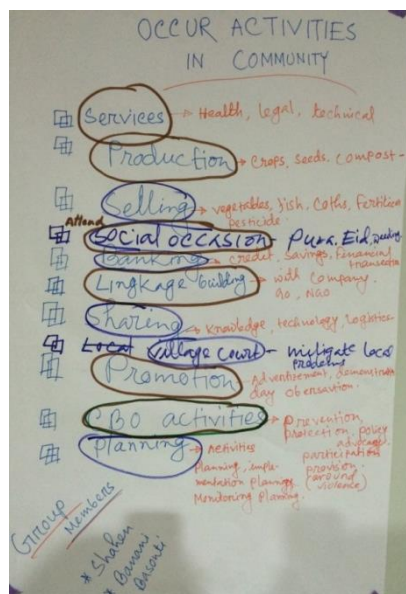 OCCUR ACTIVITIES
IN COMMUNITY
Services → Health, legal, technical
Production → Crops, seeds, compost-
Selling → vegetables, fish, Coths, Fertilizer
pesticide
Attend
Social occasion - Puxa. Eid, wedding
Banking → credet, Savings, Finnancial
transection
Lingkage building → with Company,
GO, NGO
Sharing → Knowledge, technology, Logistics
Local village court - mitigate local
problems
Promotion → Advertisement, demonstration
day obersavtion.
CBO activities → Prevention,
protection, policy
advocacy
Planning → Activities participation
Planning, imple- provision
mentation planning, (around
violence)
Monitoring planing.
Group
Members
* Shahen
* Banani
Basonti